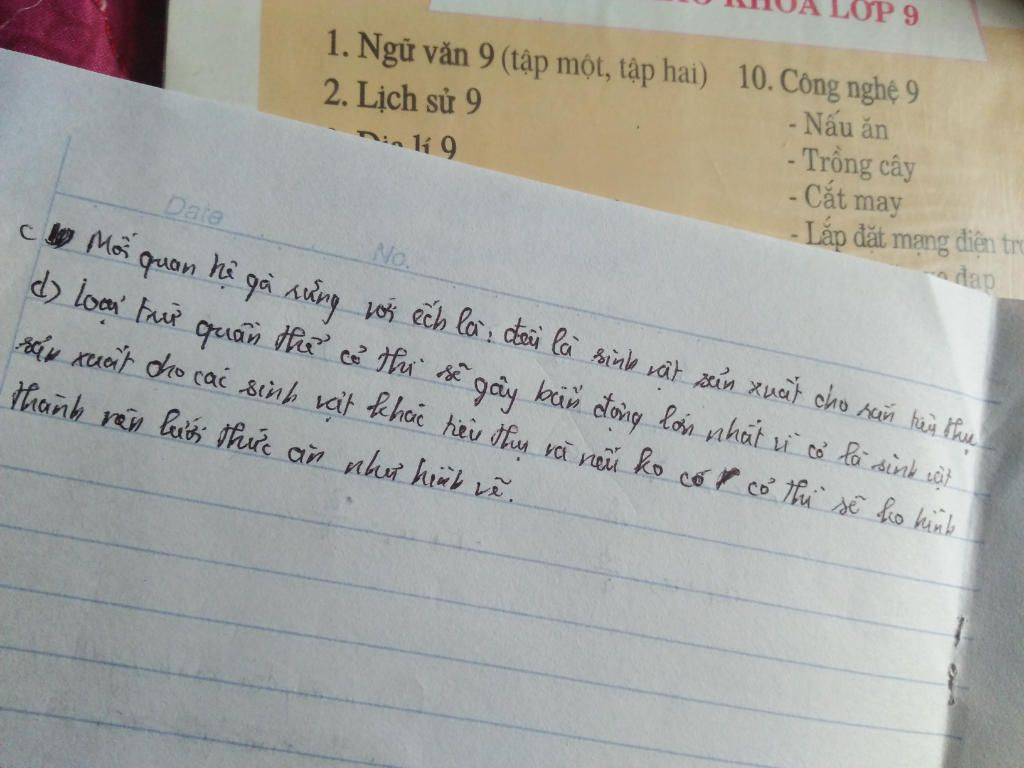 KHOA LỚP 9
1. Ngữ văn 9 (tập một, tập hai)
2. Lịch sử 9
Địa lí 9
10. Công nghệ 9
- Nấu ăn
- Trồng cây
- Cắt may
- Lắp đặt mạng điện
đạp
Date
No.
c Mối quan hệ gà rừng với ếch là: đều là sinh vật sản xuất cho rắn tiêu thụ
d) Loại trừ quần thể cỏ thì sẽ gây biến động lớn nhất vì cỏ là sinh vật
sản xuất cho các sinh vật khác tiêu thụ và nếu ko có cỏ thì sẽ ko hình
thành nên lưới thức ăn như hình vẽ.